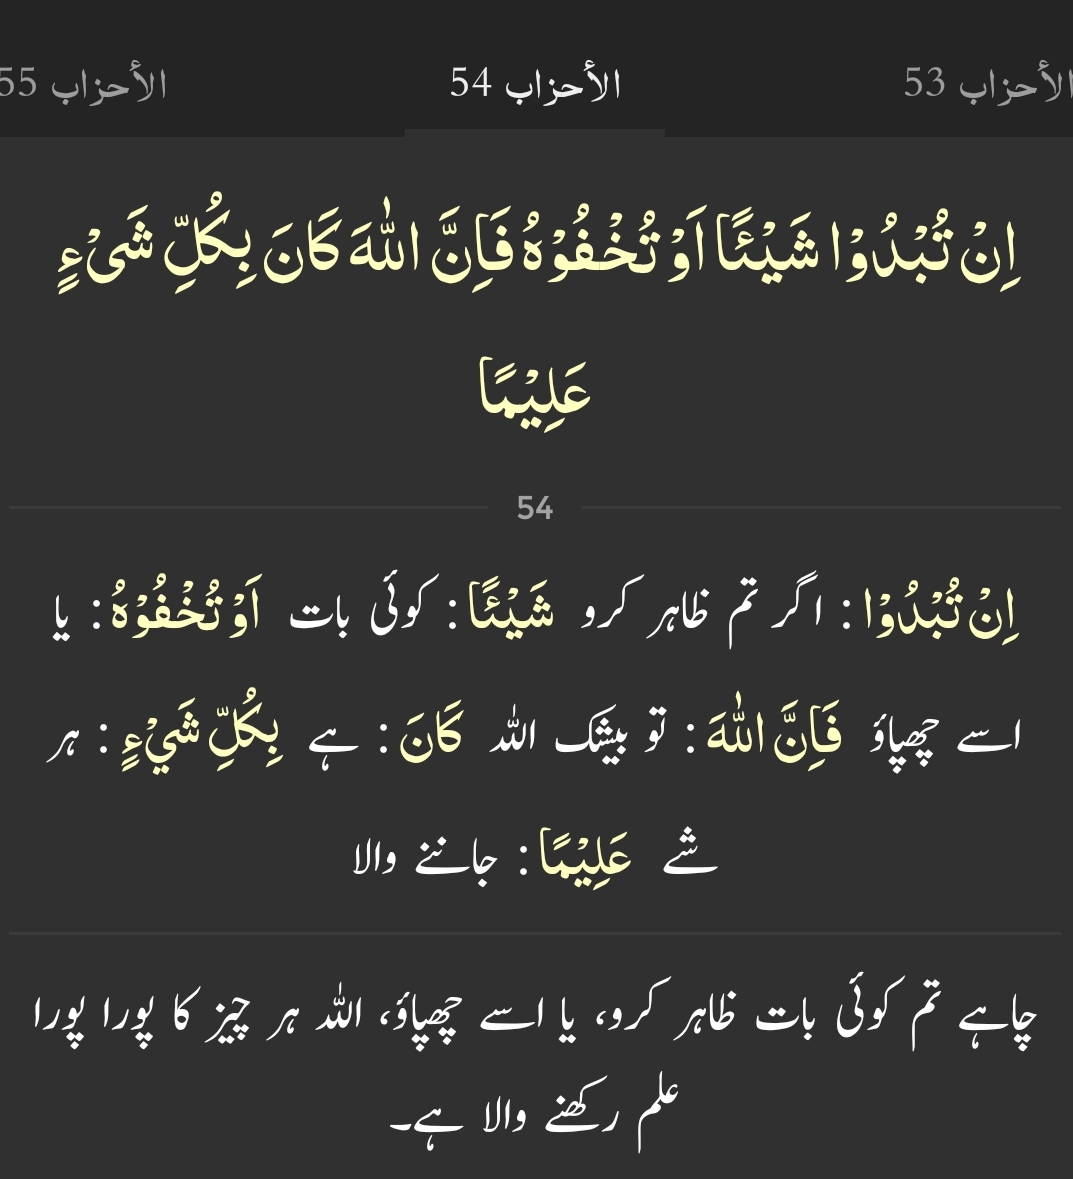 الأحزاب 53 الأحزاب 54 الأحزاب 55
اِنْ تُبْدُوْا شَيْـًٔا اَوْ تُخْفُوْهُ فَاِنَّ اللّٰهَ كَانَ بِكُلِّ شَىْءٍ
عَلِيْمًا
54
اِنْ تُبْدُوْا : اگر تم ظاہر کرو شَيْـًٔا : کوئی بات اَوْ تُخْفُوْهُ : یا
اسے چھپاؤ فَاِنَّ اللّٰهَ : تو بیشک اللہ كَانَ : ہے بِكُلِّ شَيْءٍ : ہر
شے عَلِيْمًا : جاننے والا
چاہے تم کوئی بات ظاہر کرو، یا اسے چھپاؤ، اللہ ہر چیز کا پورا پورا
علم رکھنے والا ہے۔